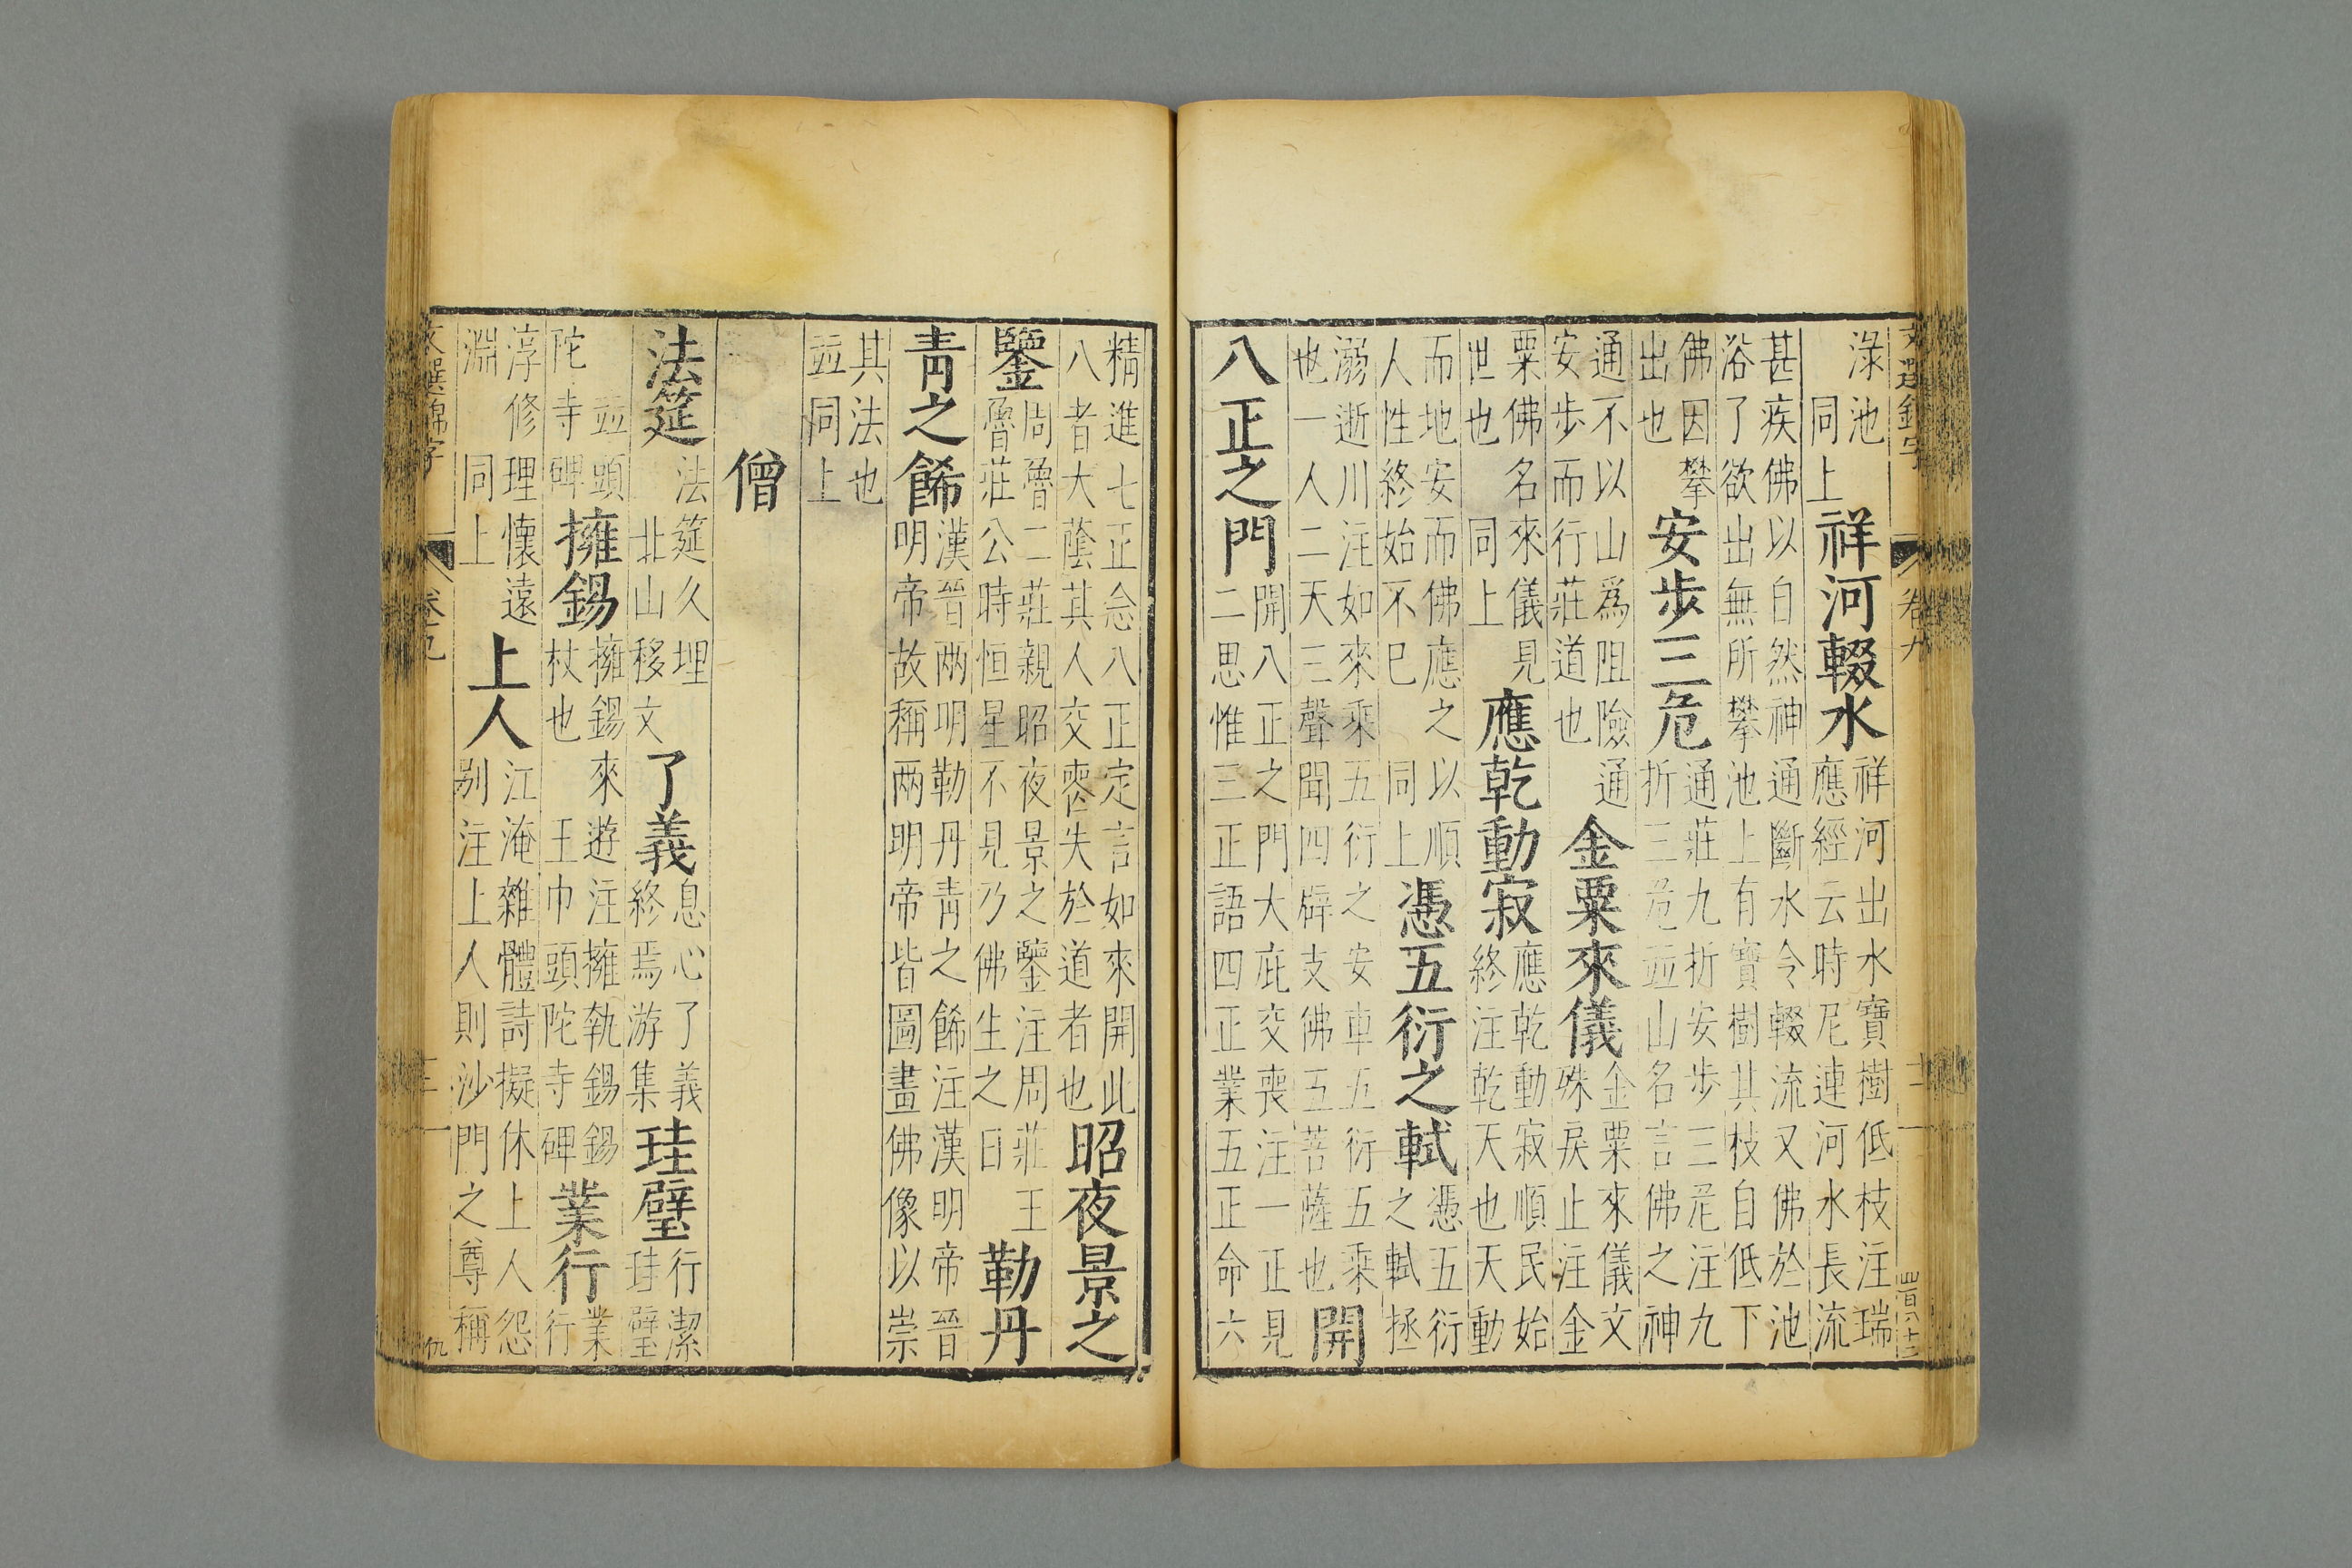 文選錦字 卷九
淥池同上祥河輟水祥河出水寶樹低枝注瑞應經云時尼連河水長流
甚疾佛以自然神通斷水令輟流又佛於池浴了欲出無所攀池上有寶樹其枝自低下
佛因攀出也安步三危通莊九折安步三危注九折三危並山名言佛之神
通不以山爲阻險通安步而行莊道也金粟來儀金粟來儀文殊戾止注金
粟佛名來儀見世也同上應乾動寂應乾動寂順民始終注乾天也天動
而地安而佛應之以順人性終始不已同上憑五衍之軾憑五衍之軾拯
溺逝川注如來乘五衍之安車五衍五乘也一人二天三聲聞四辟支佛五菩薩也開
八正之門開八正之門大庇交喪注一正見二思惟三正語四正業五正命六
精進七正念八正定言如來開此八者大蔭其人交喪失於道者也昭夜景之
鑒周魯二莊親昭夜景之鑒注周莊王魯莊公時恒星不見乃佛生之日勒丹
青之餙漢晉兩明勒丹青之餙注漢明帝晉明帝故稱兩明帝皆圖畫佛像以崇
其法也並同上
僧
法筵法筵久埋北山移文了義息心了義終焉游集珪璧行潔珪璧
並頭陀寺碑擁錫擁錫來遊注擁執錫錫杖也王巾頭陀寺碑業行業行
淳修理懷遠淵同上上人江淹雜體詩擬休上人怨别注上人則沙門之尊稱
文選錦字 卷九